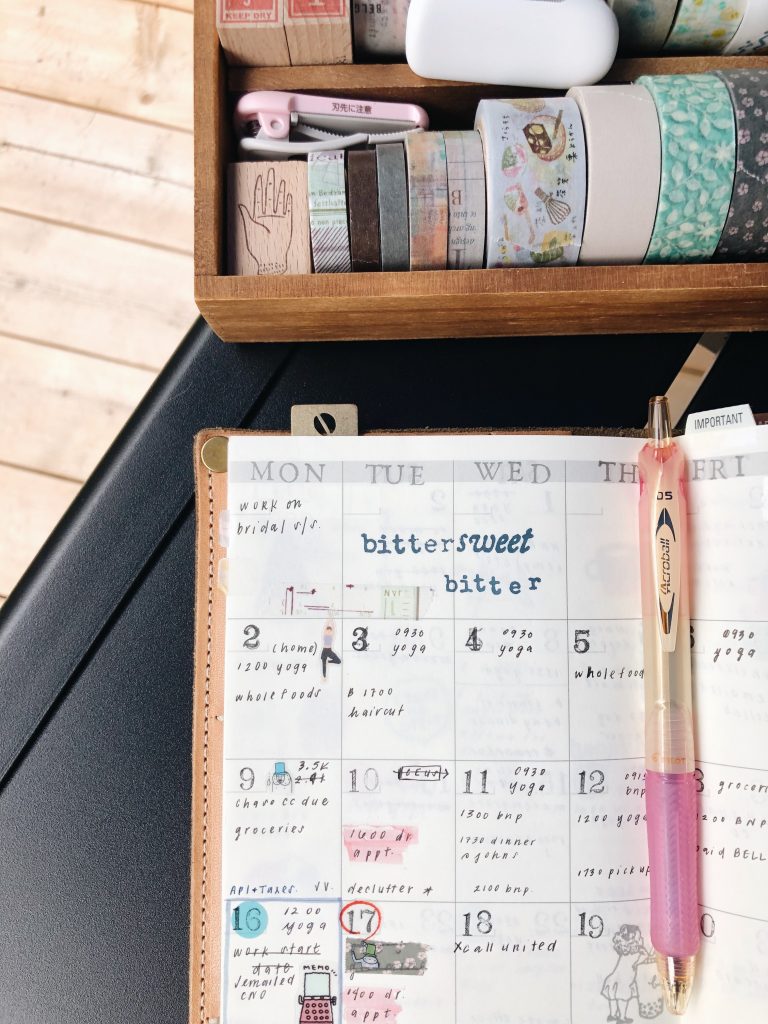 KEEP DRY
BELG
刃先に注意
design
IMPORTANT
MON TUE WED TH FRI
work on
bridal s/s.
bittersweet
bitter
05
Acroball
PILOT
2 (home)
1200 yoga
wholefoods
3 0930
yoga
B 1700
haircut
4 0930
yoga
5
wholefood
0930
yoga
9 3.5K
chase cc due
groceries
API + Taxes. VV.
10
1600 dr.
appt.
declutter *
11 0930
yoga
1300 bnp
1730 dinner
@johns
2100 bnp.
12 0915
bnp
1200 yoga
1730 pick up
groceri
200 BNP
paid BELL
16 1200
yoga
work start
date
emailed
CNO
MEMO...
17
1400 dr.
appt.
18
x call united
19